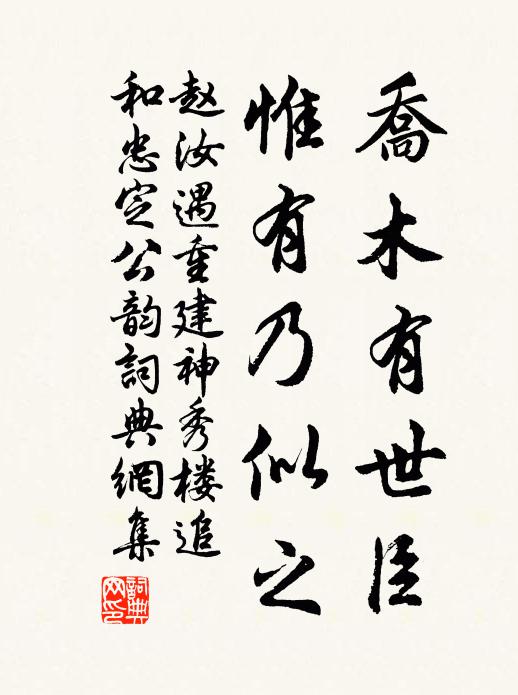 喬木有世臣
惟有乃似之
赵汝遇重建神秀楼追
和忠定公韵詞典網集
詞典網印